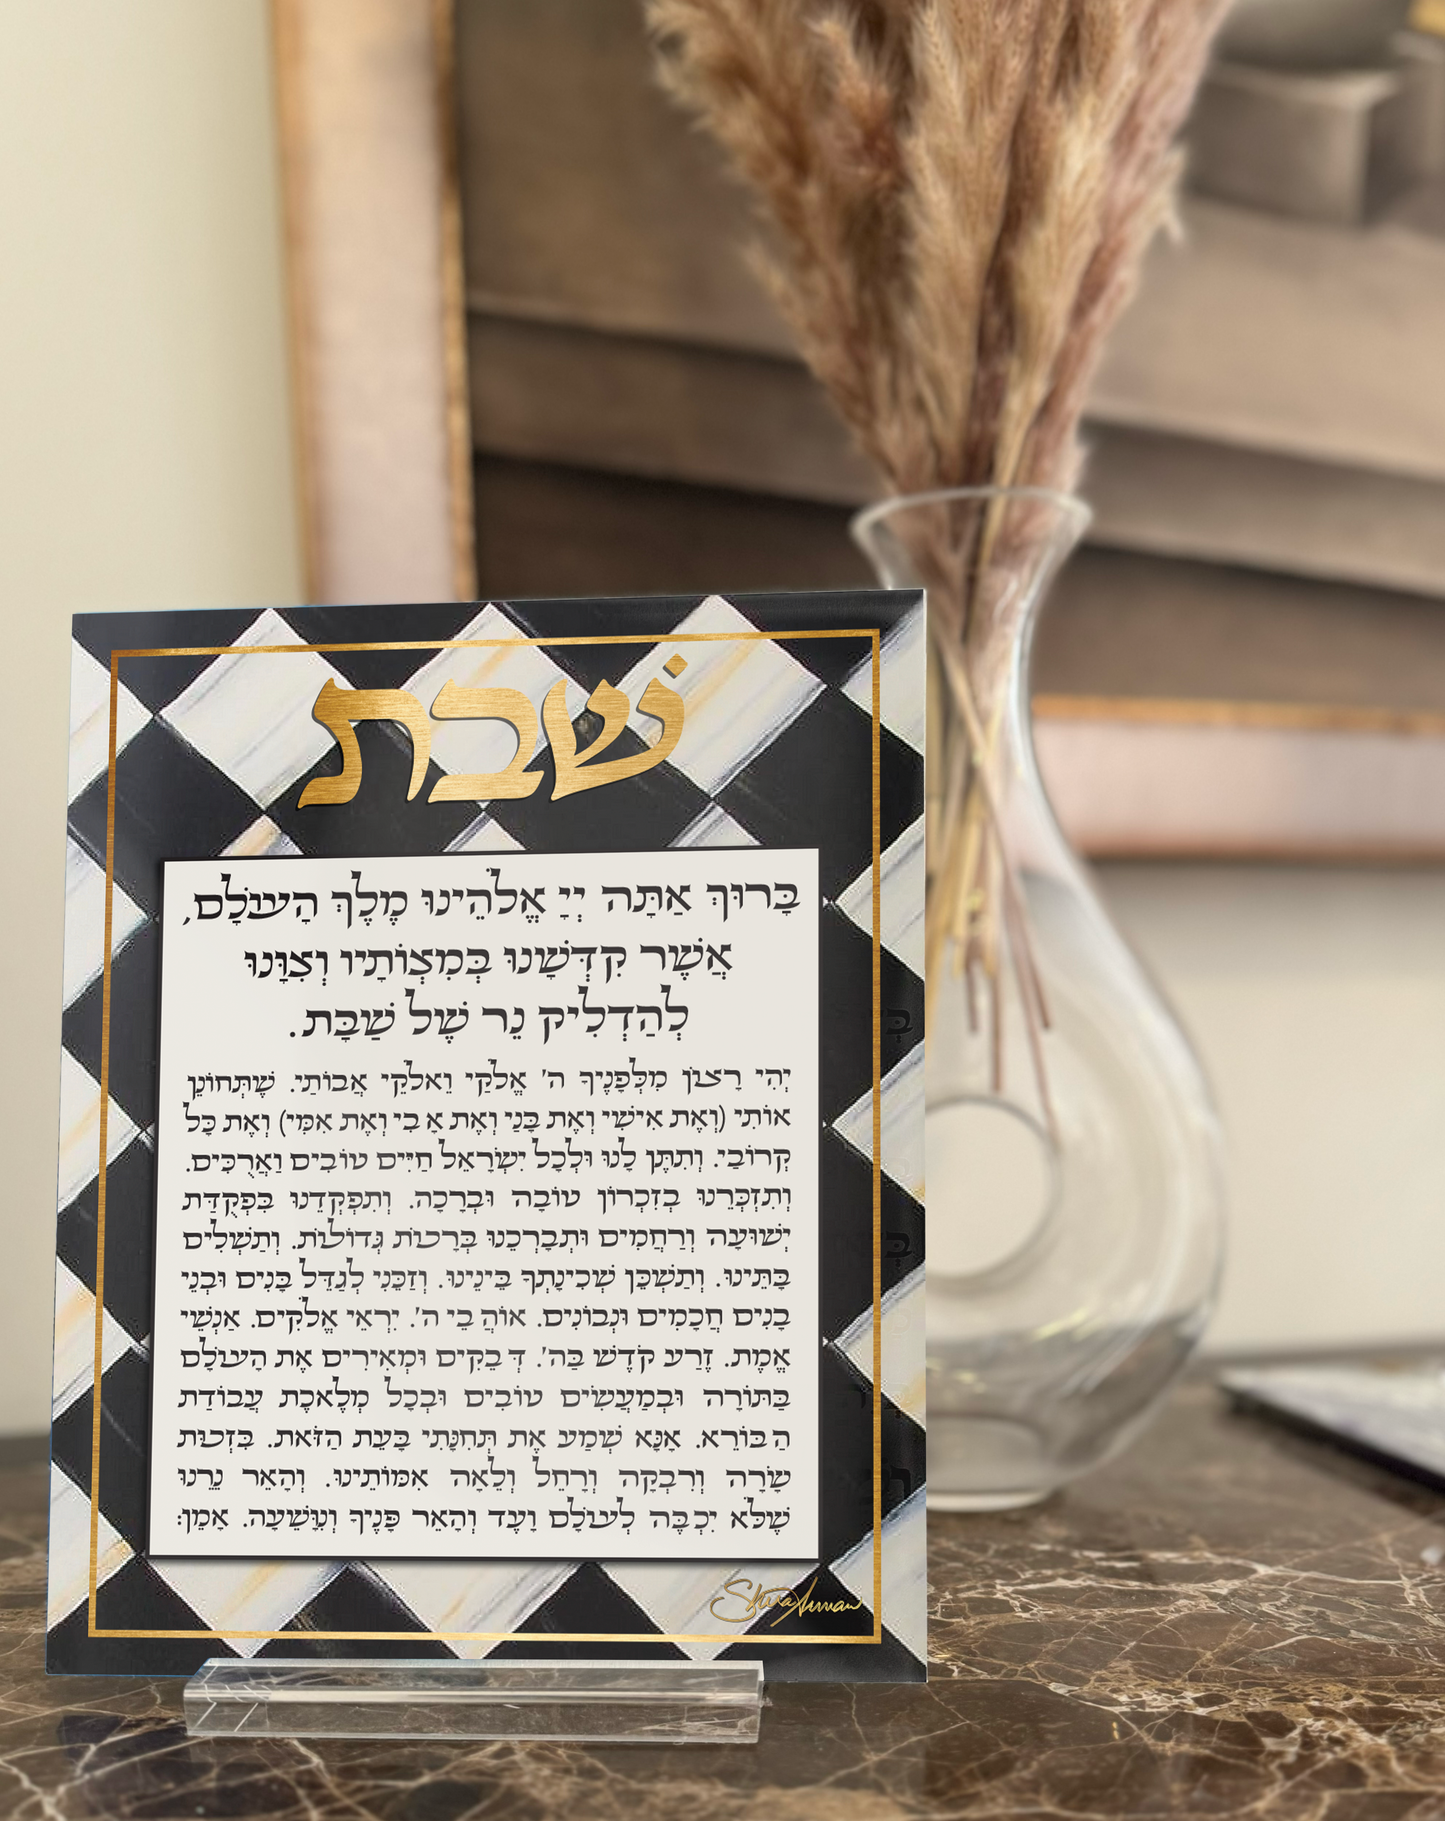 שבת
בָּרוּךְ אַתָּה יְיָ אֱלֹהֵינוּ מֶלֶךְ הָעוֹלָם,
אֲשֶׁר קִדְּשָׁנוּ בְּמִצְוֹתָיו וְצִוָּנוּ
לְהַדְלִיק נֵר שֶׁל שַׁבָּת.
יְהִי רָצוֹן מִלְּפָנֶיךָ ה' אֱלֹקַי וֵאלֹקֵי אֲבוֹתַי. שֶׁתְּחוֹנֵן
אוֹתִי (וְאֶת אִישִׁי וְאֶת בָּנַי וְאֶת אָבִי וְאֶת אִמִּי) וְאֶת כָּל
קְרוֹבַי. וְתִתֶּן לָנוּ וּלְכָל יִשְׂרָאֵל חַיִּים טוֹבִים וַאֲרֻכִּים.
וְתִזְכְּרֵנוּ בְזִכְרוֹן טוֹבָה וּבְרָכָה. וְתִפְקְדֵנוּ בִּפְקֻדַּת
יְשׁוּעָה וְרַחֲמִים וּתְבָרְכֵנוּ בְּרָכוֹת גְּדוֹלוֹת. וְתַשְׁלִים
בָּתֵּינוּ. וְתַשְׁכֵּן שְׁכִינָתְךָ בֵּינֵינוּ. וְזַכֵּנִי לְגַדֵּל בָּנִים וּבְנֵי
בָנִים חֲכָמִים וּנְבוֹנִים. אוֹהֲבֵי ה'. יִרְאֵי אֱלֹקִים. אַנְשֵׁי
אֱמֶת. זֶרַע קֹדֶשׁ בַּה'. דְּבֵקִים וּמְאִירִים אֶת הָעוֹלָם
בַּתּוֹרָה וּבְמַעֲשִׂים טוֹבִים וּבְכָל מְלֶאכֶת עֲבוֹדַת
הַבּוֹרֵא. אָנָּא שְׁמַע אֶת תְּחִנָּתִי בָּעֵת הַזֹּאת. בִּזְכוּת
שָׂרָה וְרִבְקָה וְרָחֵל וְלֵאָה אִמּוֹתֵינוּ. וְהָאֵר נֵרֵנוּ
שֶׁלֹּא יִכְבֶּה לְעוֹלָם וָעֶד וְהָאֵר פָּנֶיךָ וְנִוָּשֵׁעָה. אָמֵן: